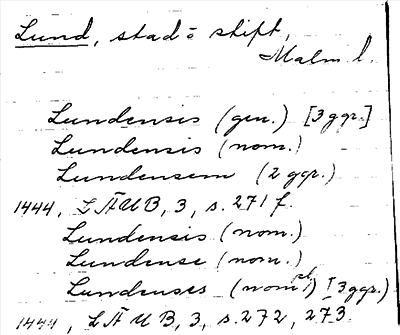 Lund, stad o stift,
Malm. l.
Lundensis (gen.) [3 ggr.]
Lundensis (nom.)
Lundensem (2 ggr.)
1444, LÄUB, 3, s. 271 f.
Lundensis (nom.)
Lundense (nom.)
Lundenses (nom. pl.) [3 ggr.)
1444, LÄUB, 3, s. 272, 273.